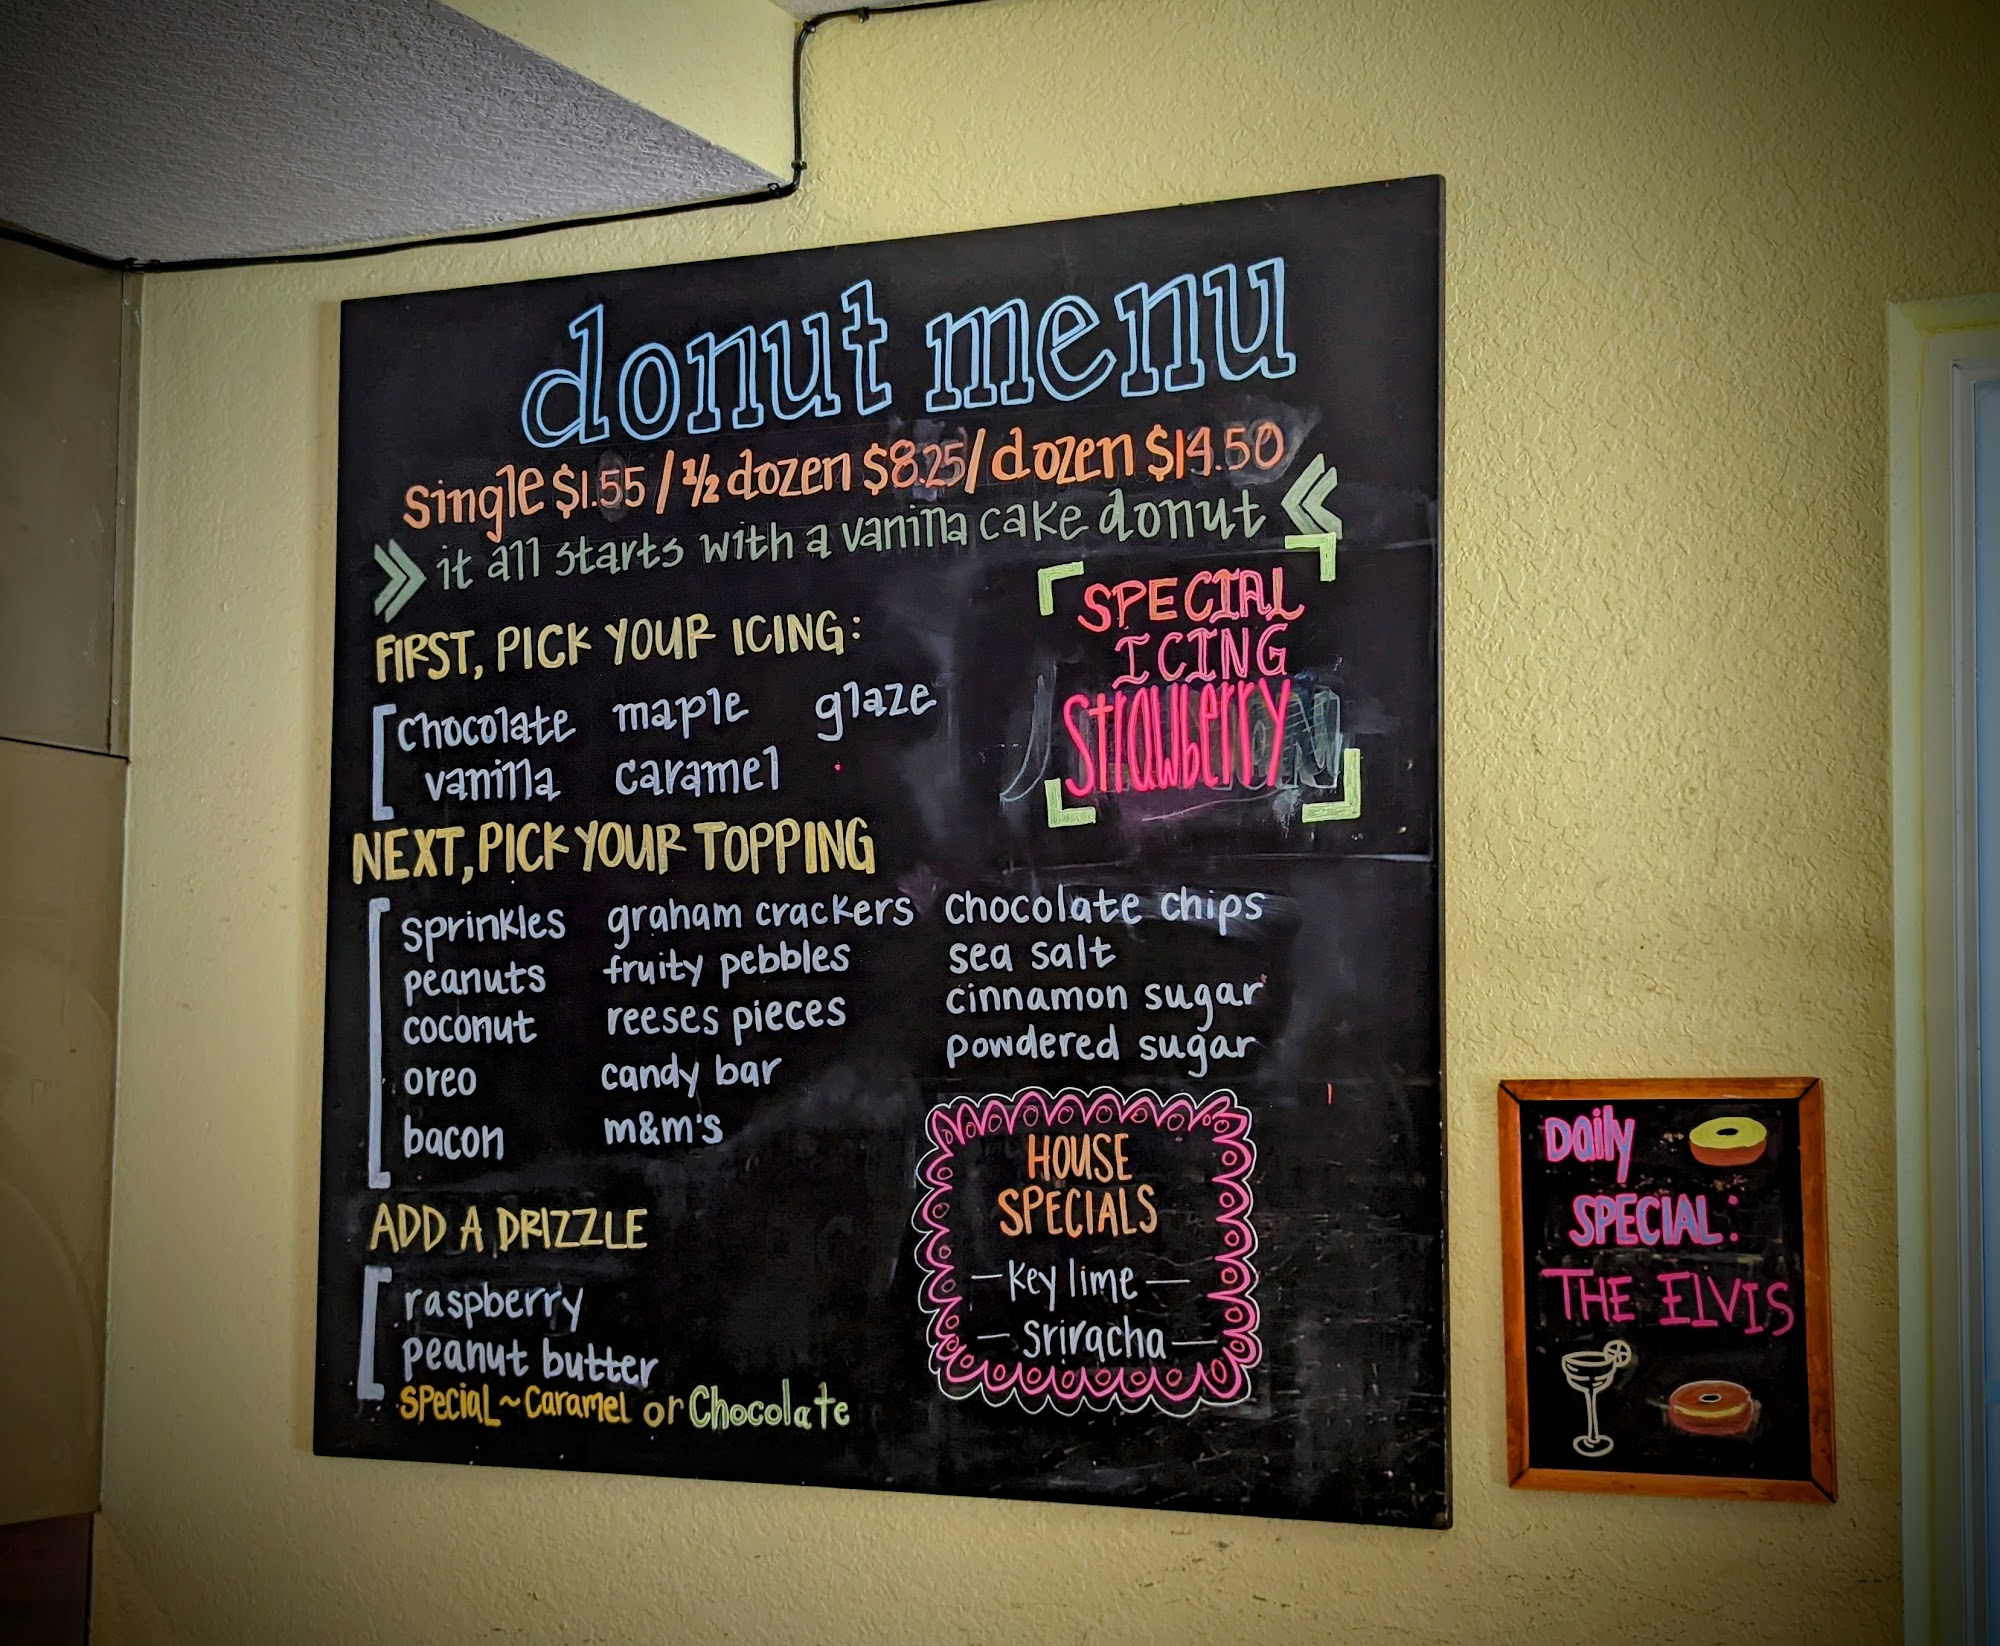 donut menu
single $1.55 / ½ dozen $8.25 / dozen $14.50
it all starts with a vanilla cake donut
FIRST, PICK YOUR ICING:
chocolate maple glaze
vanilla caramel
SPECIAL
ICING
Strawberry
NEXT, PICK YOUR TOPPING
sprinkles graham crackers chocolate chips
peanuts fruity pebbles sea salt
coconut reeses pieces cinnamon sugar
oreo candy bar powdered sugar
bacon m&m's
ADD A DRIZZLE
raspberry
peanut butter
Special~Caramel or Chocolate
HOUSE
SPECIALS
—Key lime—
—Sriracha—
Daily
SPECIAL:
THE ELVIS